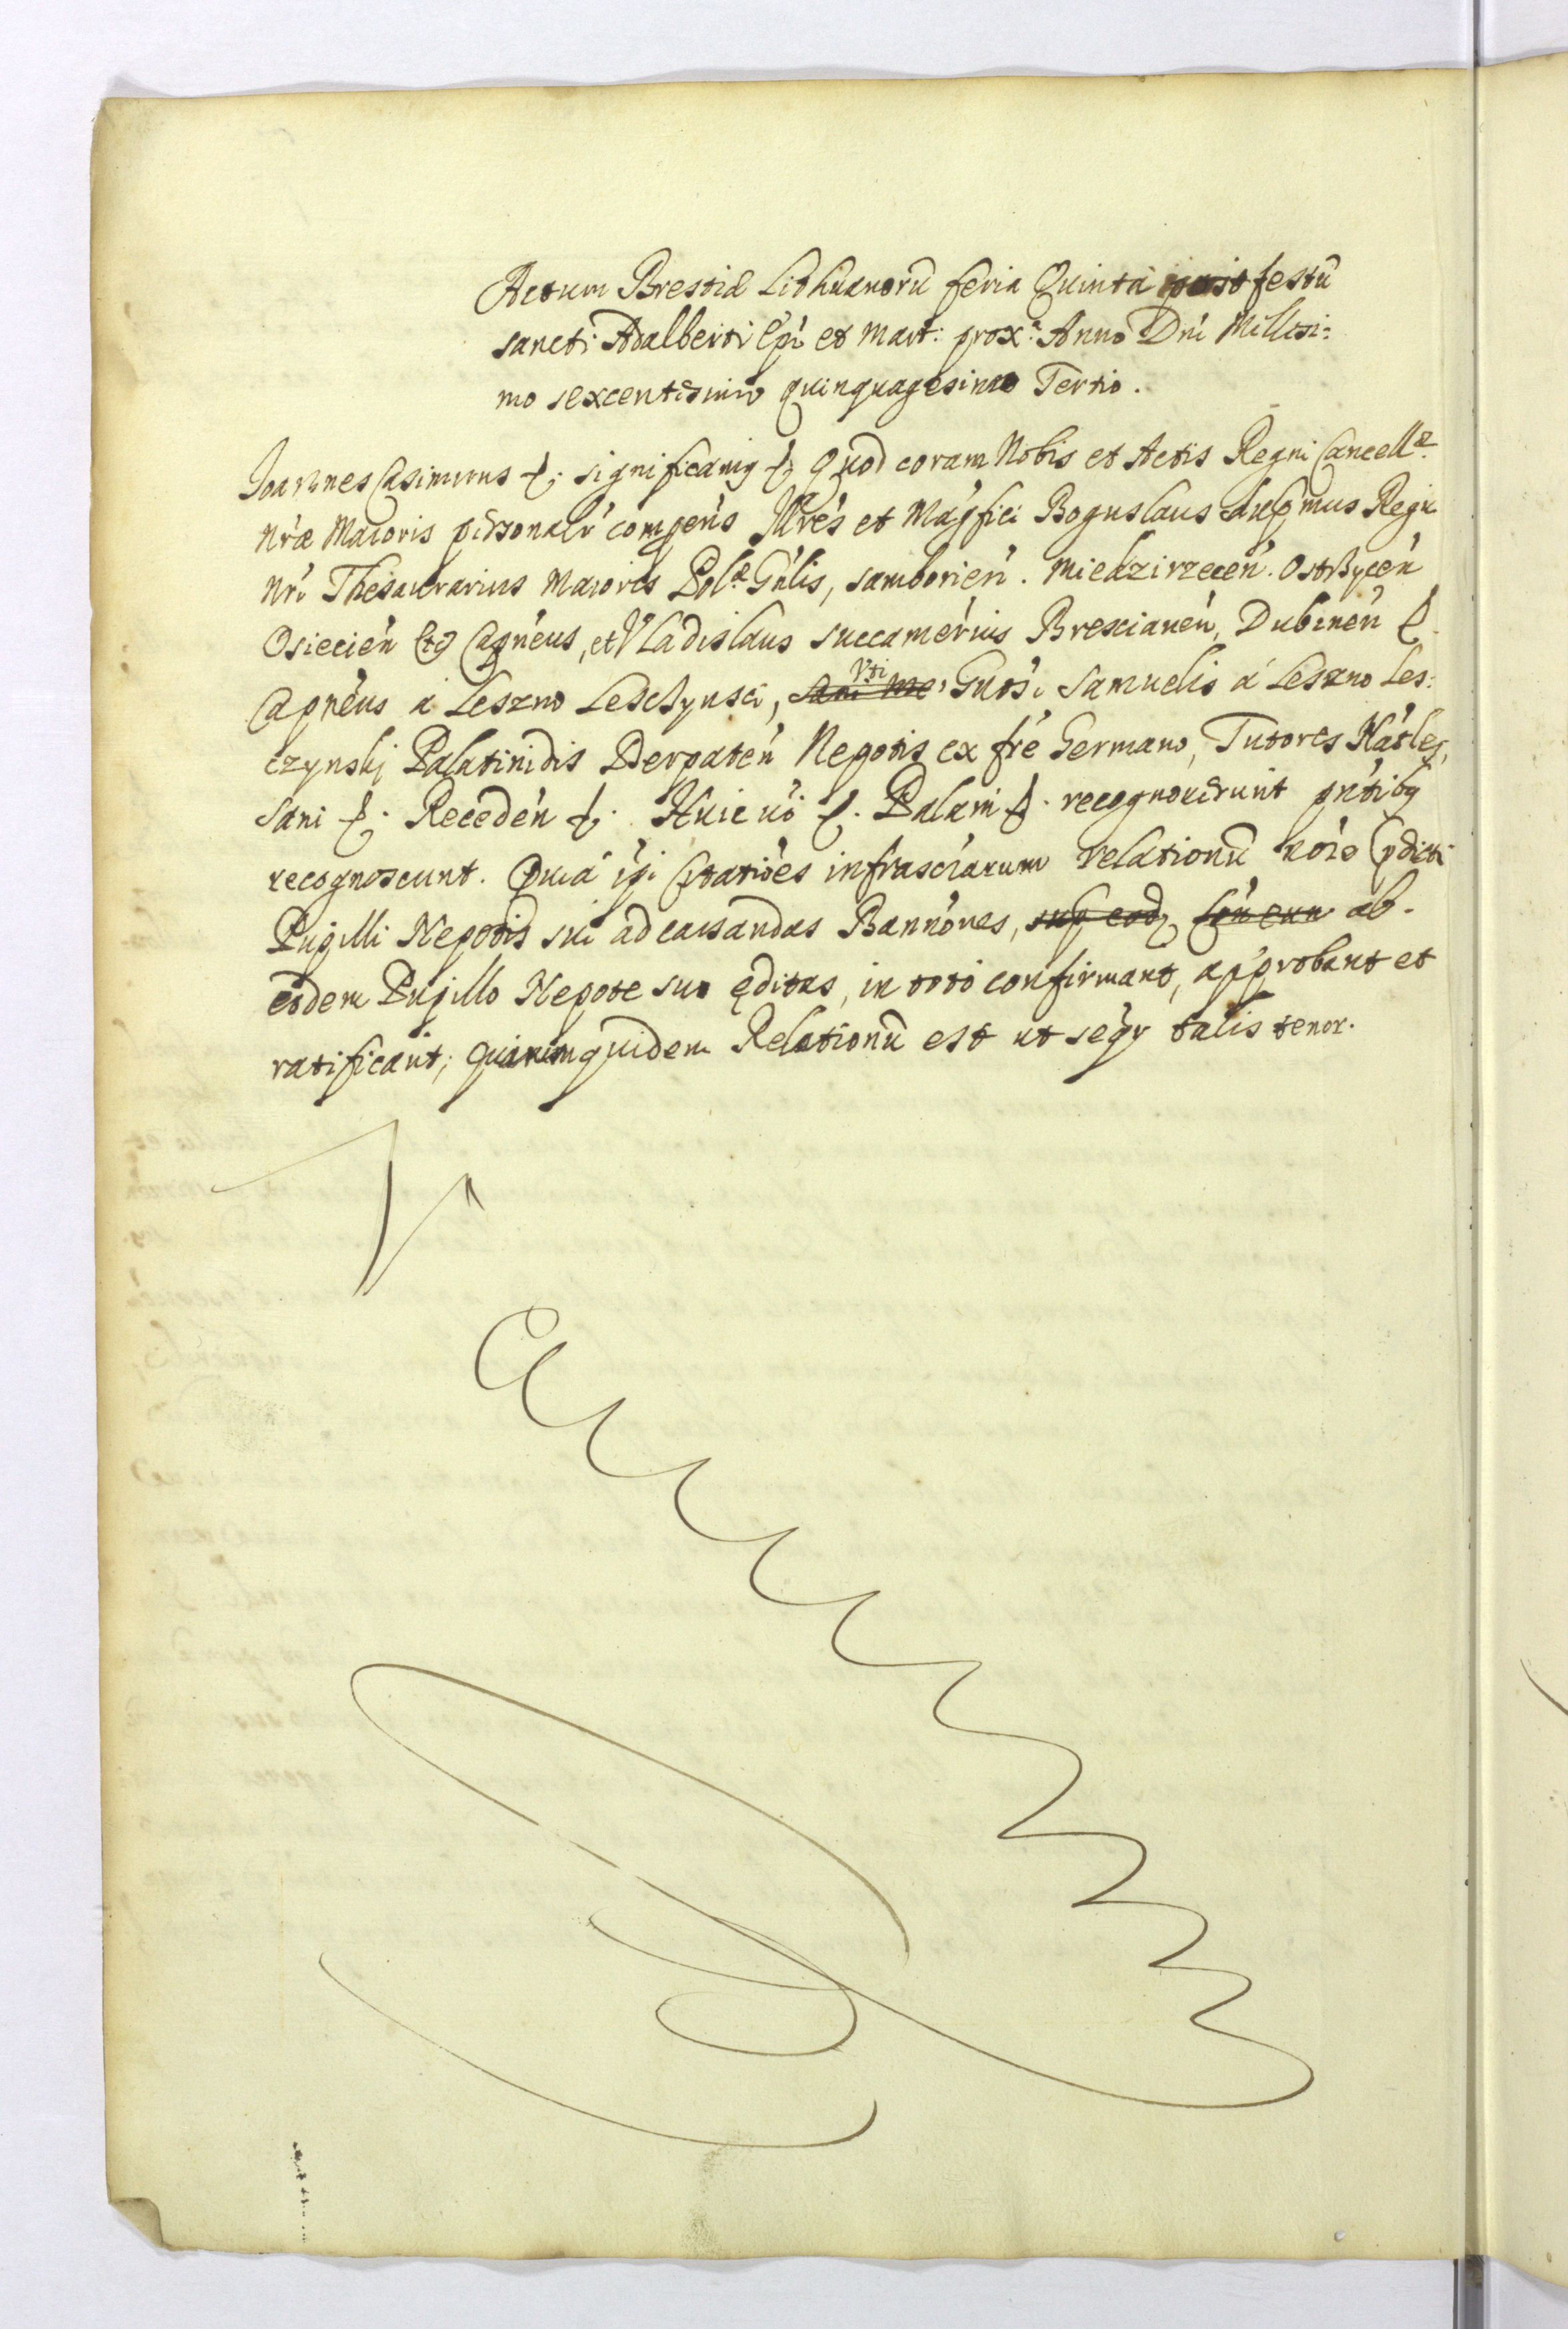 Actum Brestiæ Lithuanorū feria Quinta post festū
sancti Adalberti Epi et Mart: prox: Anno Dni Millesi:
mo sexcentesimo quinquagesimo Tertio.
Joannes Casimirus &. significamg &. Quod coram Nobis et Actis Regni Cancellæ
nræ Maioris psonalr comperis Illres et Magfici Boguslaus supmus Regni
nri Thesaurarius Maioris Polæ Gnlis, samborien. Miedzirzecen. Ostrzycen
Osiecien etc Capneus, et Vladislaus succamerius Brescianen, Dubinen &.
Capneus a Leszno Leschynsci, Vti Gnosi Samuelis a Leszno Les:
czynskj Palatinidis Derpaten Nepotis ex fre Germano, Tutores Natles,
sani &. Receden &. Huic uo &. Palam &. recognouerunt pntibg
recognoscunt. Quia ipi infrascrarum relationū noie pdicti
Pupilli Nepotis sui ad cassandas Bannones, ab
eodem Pupillo Nepote suo editas, in toto confirmant, approbant et
ratificant; quarumquidem Relationū est ut seqr talis tenor.